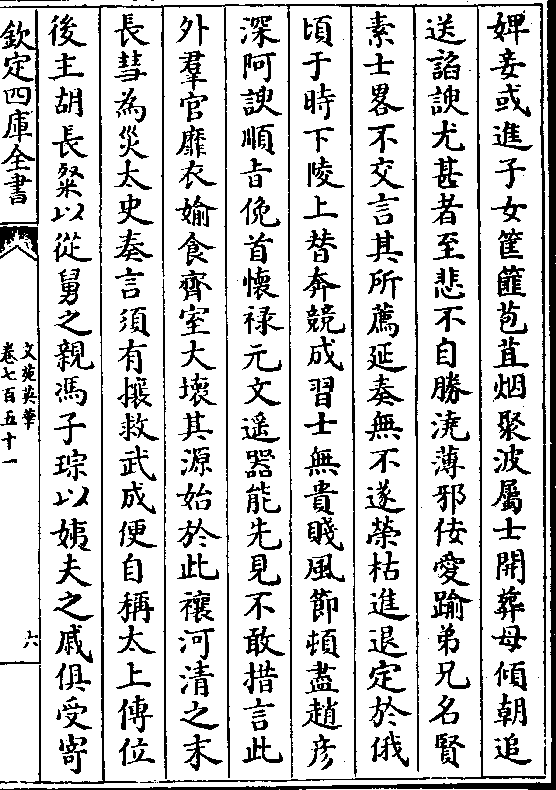 婢妾或進子女筐篚苞苴烟聚波屬士開葬母傾朝追
送諂諛尤甚者至悲不自勝澆薄邪佞愛踰弟兄名賢
素士畧不交言其所薦延奏無不遂榮枯進退定於俄
頃于時下陵上替奔競成習士無貴賤風節頓盡趙彦
深阿諛順㫖俛首懐禄元文遥器能先見不敢措言此
外羣官靡衣婾食齊室大壊其源始於此禳河清之末
長彗為災太史奏言須有攘救武成便自稱太上傳位
後主胡長粲以從舅之親馮子琮以姨夫之戚俱受寄
欽定四庫全書
文苑英華
卷七百五十一
六